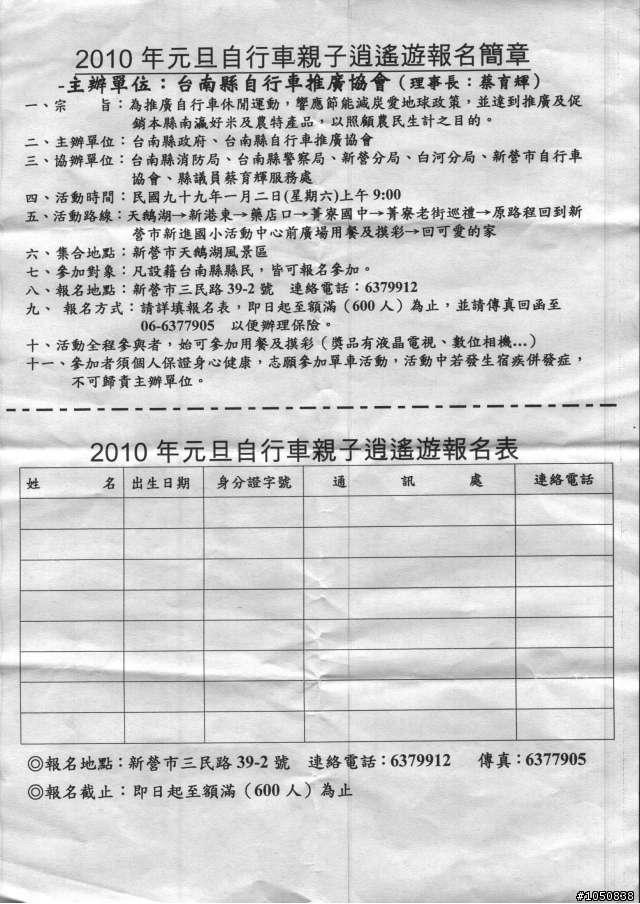 2010 年元旦自行車親子逍遙遊報名簡章
-主辦單位：台南縣自行車推廣協會（理事長：蔡育輝）
一、宗　　旨：為推廣自行車休閒運動，響應節能減炭愛地球政策，並達到推廣及促
銷本縣南瀛好米及農特產品，以照顧農民生計之目的。
二、主辦單位：台南縣政府、台南縣自行車推廣協會
三、協辦單位：台南縣消防局、台南縣警察局、新營分局、白河分局、新營市自行車
協會、縣議員蔡育輝服務處
四、活動時間：民國九十九年一月二日(星期六)上午 9:00
五、活動路線：天鵝湖→新港東→藥店口→菁寮國中→菁寮老街巡禮→原路程回到新
營市新進國小活動中心前廣場用餐及摸彩→回可愛的家
六、集合地點：新營市天鵝湖風景區
七、參加對象：凡設籍台南縣縣民，皆可報名參加。
八、報名地點：新營市三民路 39-2 號　連絡電話：6379912
九、 報名方式：請詳填報名表，即日起至額滿（600 人）為止，並請傳真回函至
06-6377905　以便辦理保險。
十、活動全程參與者，始可參加用餐及摸彩（獎品有液晶電視、數位相機…）
十一、參加者須個人保證身心健康，志願參加單車活動，活動中若發生宿疾併發症，
不可歸責主辦單位。
2010 年元旦自行車親子逍遙遊報名表
姓　　　名　出生日期　身分證字號　通　　訊　　處　連絡電話
◎報名地點：新營市三民路 39-2 號　連絡電話：6379912　傳真：6377905
◎報名截止：即日起至額滿（600 人）為止
#1050838